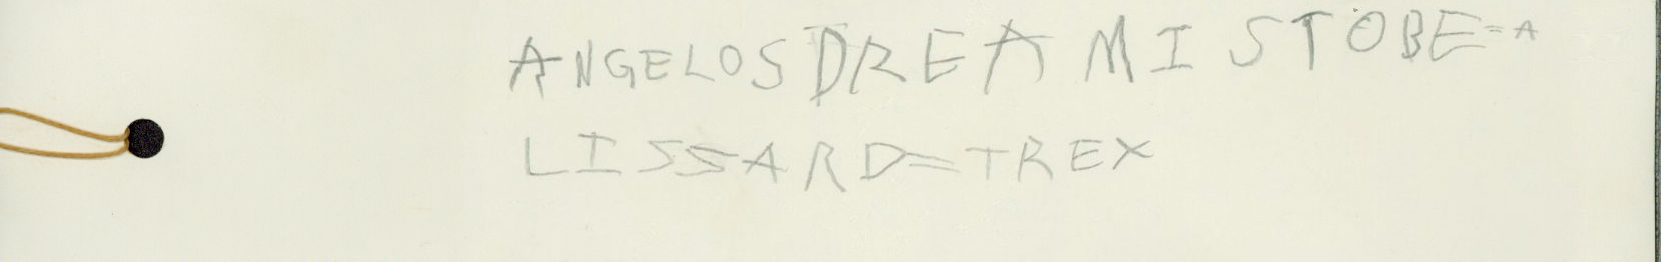 ANGELOS DREAM IS TO BE=A
LISSARD=TREX